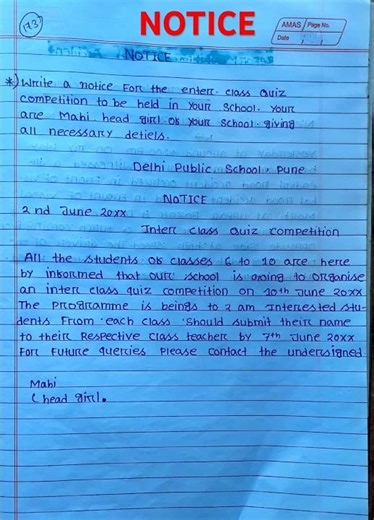 NOTICE
1737
AMAS Page No.
Date
NOTICE
*) Write a notice For the enter. class Quiz
competition to be held in your School. your
are Mahi head girl of your School. giving
all necessary detiels.
Delhi Public School. Pune
NOTICE
2nd June 20xx
Inter class Quiz competition
All the students of classes 6 to 10 are here
by informed that our school is going to organise
an inter class quiz competition on 10th June 20xx
The Programme is beings to 2 am Interested stu-
dents From each class Should submit their name
to their Respective class teacher by 7th June 20xx
For Future querries Please contact the undersigned
Mahi
(head girl.